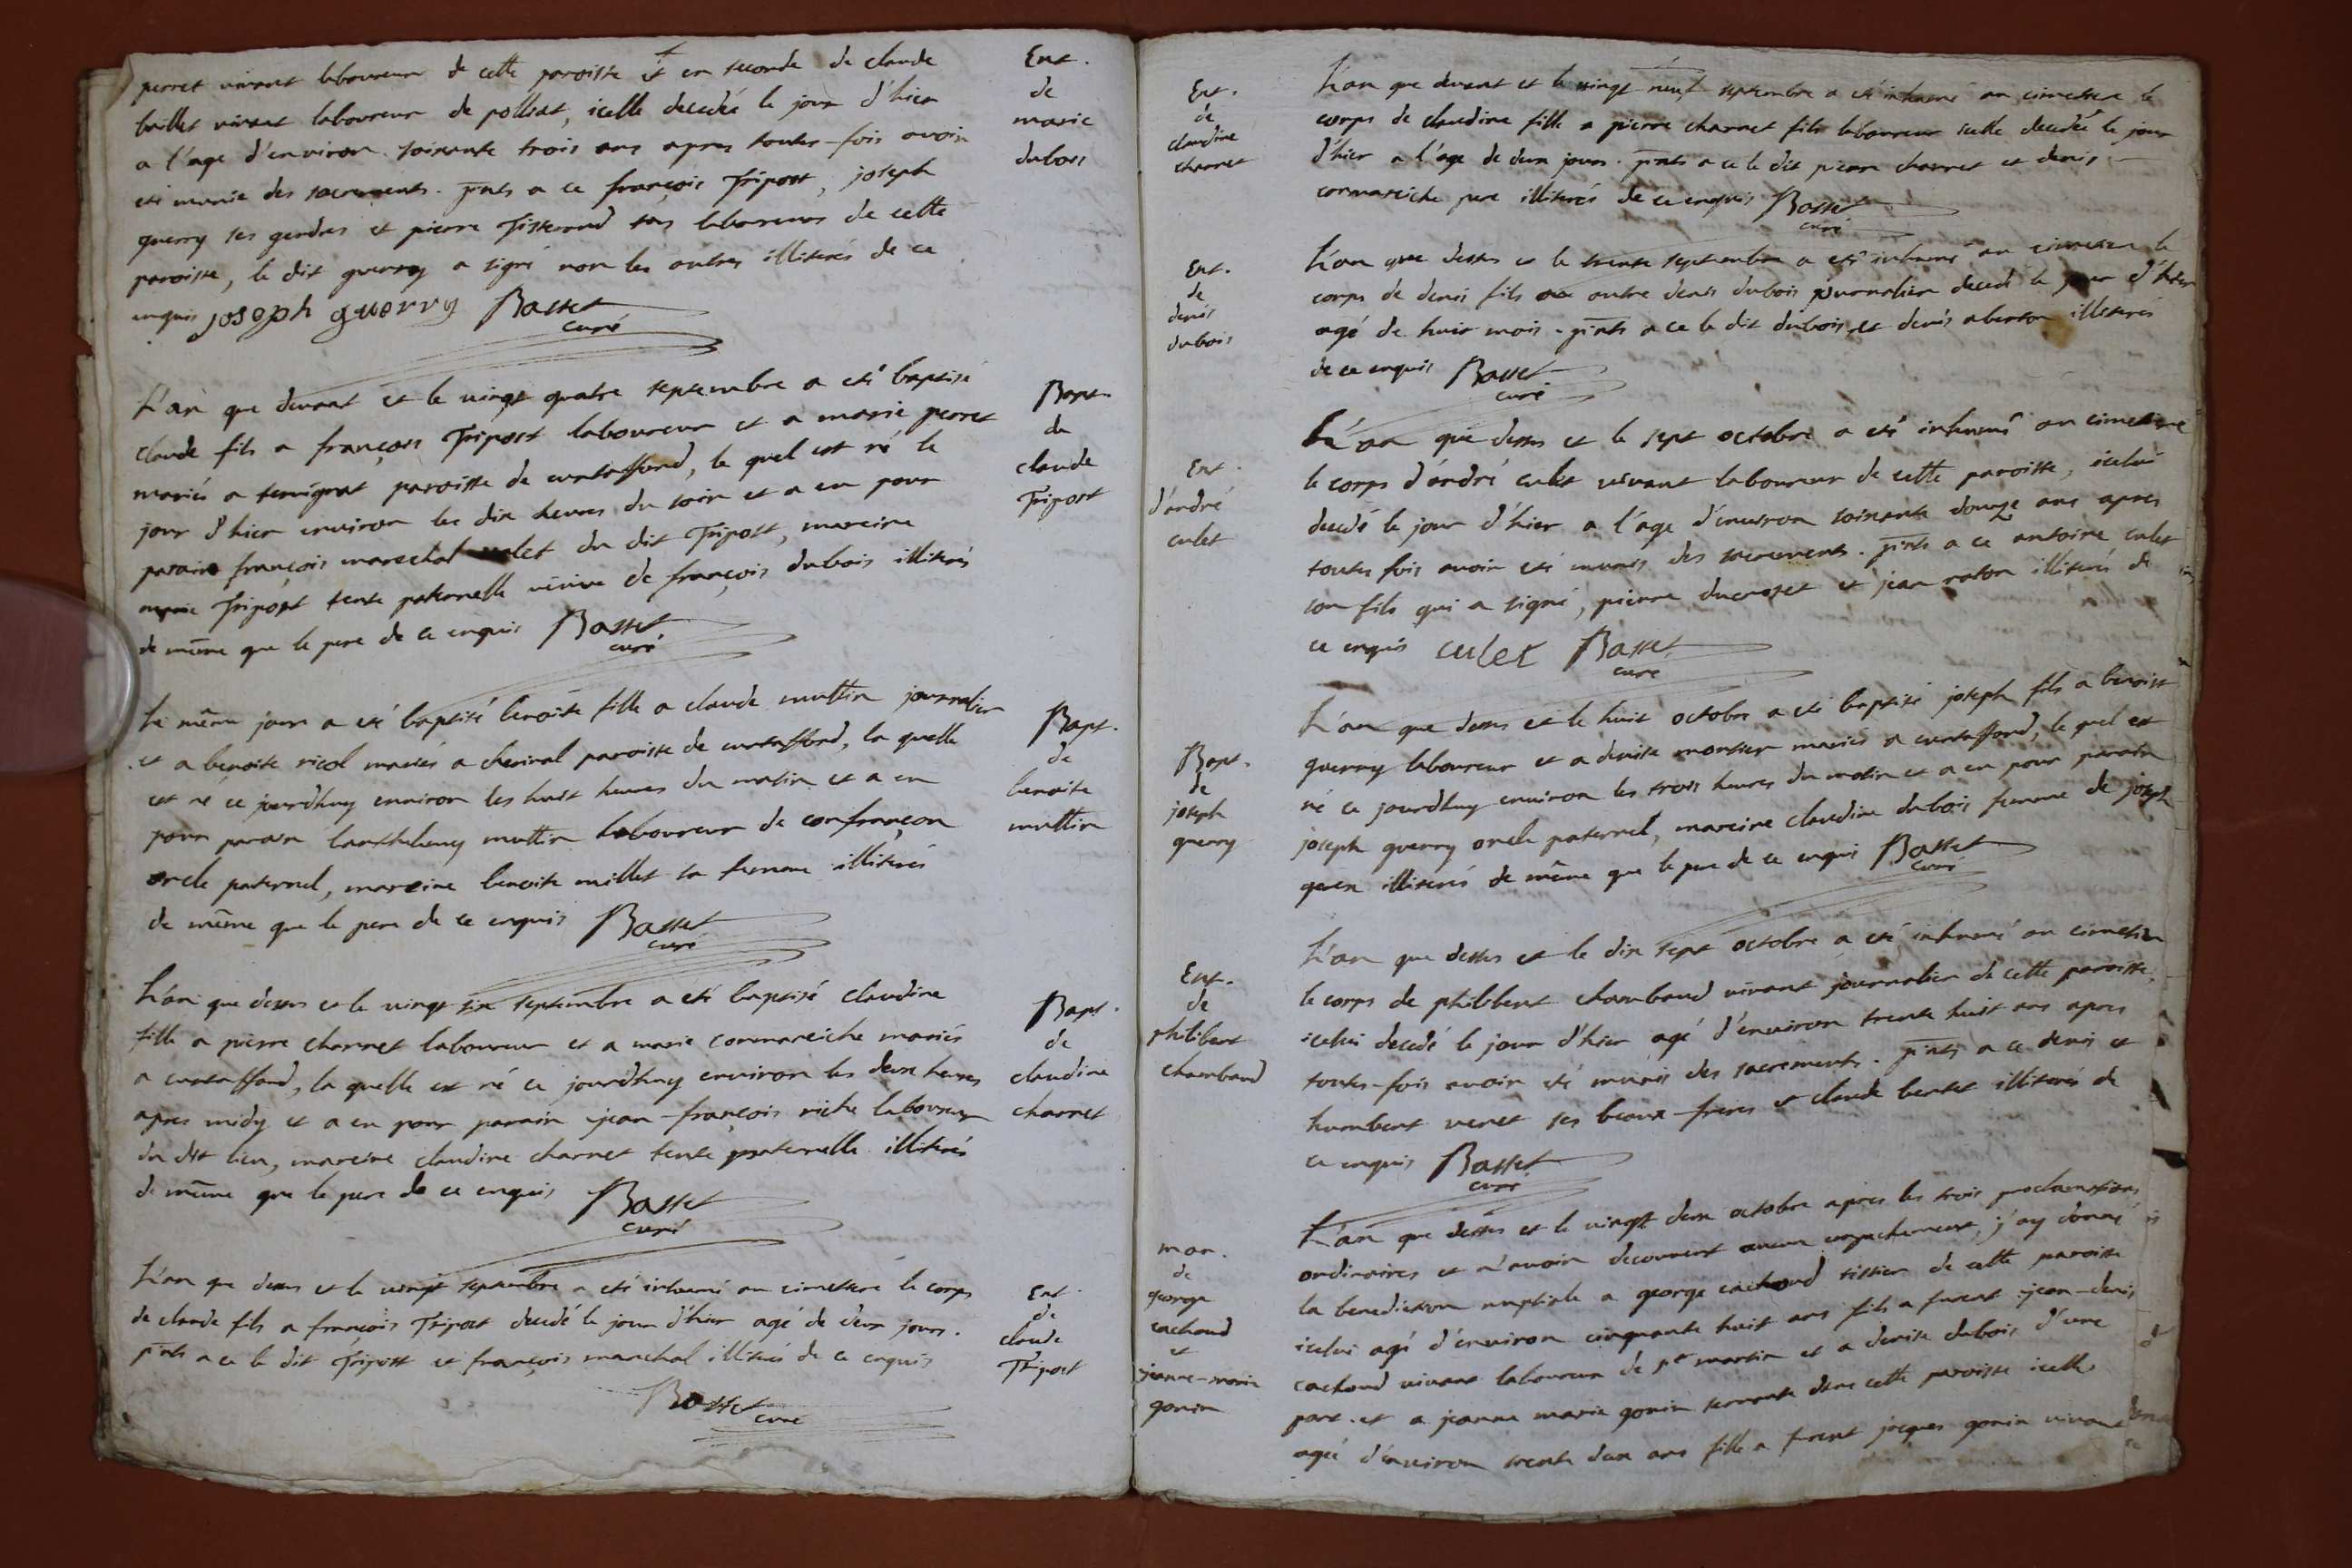 perret vivant laboureur de cette paroisse et en seconde de claude
baillet vivant laboureur de polliat, icelle decedée le jour d'hier
a l'age d'environ soixante trois ans apres toutes-fois avoir
eté munie des sacrements. pnts a ce françois Tripost, joseph
guerry ses gendres et pierre Tisserand tous laboureurs de cette
paroisse, le dit guerry a signé non les autres illiterés de ce
enquis joseph guerry Basset
curé
Ent.
de
marie
dubois
L'an que devant et le vingt quatre septembre a eté baptisé
claude fils a françois Tripost laboureur et a marie perret
mariés a temignat paroisse de curtaffond, le quel est né le
jour d'hier environ les dix heures du soir et a eu pour
parain françois marechal valet du dit Tripost, mareine
marie Tripost tente paternelle veuve de françois dubois illiterés
de même que le pere de ce enquis Basset
curé
Bapt.
de
claude
Tripost
Le même jour a eté baptisé benoite fille a claude muttin journalier
et a benoite nicol mariés a cherinal paroisse de curtaffond, la quelle
est né ce jourdhuy environ les huit heures du matin et a eu
pour parain barthelemy muttin laboureur de confrançon
oncle paternel, mareine benoite millet sa femme illiterés
de même que le pere de ce enquis Basset
curé
Bapt.
de
benoite
muttin
L'an que dessus et le vingt six septembre a eté baptisé claudine
fille a pierre charnet laboureur et a marie cormareiche mariés
a curtaffond, la quelle est né ce jourdhuy environ les deux heures
apres midy et a eu pour parain jean-françois riche laboureur
du dit lieu, mareine claudine charnet tente paternelle illiterés
de même que le pere de ce enquis Basset
curé
Bapt.
de
claudine
charnet
L'an que dessus et le vingt septembre a eté inhumé au cimetiere le corps
de claude fils a françois Tripost decedé le jour d'hier agé de deux jours.
pnts a ce le dit Tripost et françois marechal illiterés de ce enquis
Basset
curé
Ent.
de
claude
Tripost
Ent.
de
claudine
charnet
L'an que devant et le vingt neuf septembre a eté inhumé au cimetiere le
corps de claudine fille a pierre charnet fils laboureur icelle decedée le jour
d'hier a l'age de deux jours. pnts a ce le dit pierre charnet et denis
cormareiche pere illiterés de ce enquis Basset
curé
Ent.
de
denis
dubois
L'an que dessus et le trente septembre a eté inhumé au cimetiere le
corps de denis fils a autre denis dubois journalier decedé le jour d'hier
agé de huit mois. pnts a ce le dit dubois, et denis aberton illiterés
de ce enquis Basset
curé
Ent.
d'andré
culet
L'an que dessus et le sept octobre a eté inhumé au cimetiere
le corps d'andré culet vivant laboureur de cette paroisse, icelui
decedé le jour d'hier a l'age d'environ soixante douze ans apres
toutes fois avoir eté munis des sacrements. pnts a ce antoine culet
son fils qui a signé, pierre ducroset et jean raton illiterés de
ce enquis culet Basset
curé
Bapt.
de
joseph
guerry
L'an que dessus et le huit octobre a eté baptisé joseph fils a benoist
guerry laboureur et a denise monsier mariés a curtaffond, le quel est
né ce jourdhuy environ les trois heures du matin et a eu pour parain
joseph guerry oncle paternel, mareine claudine dubois femme de joseph
illiterés de même que le pere de ce enquis Basset
curé
Ent.
de
philibert
chambaud
L'an que dessus et le dix sept octobre a eté inhumé au cimetiere
le corps de philibert chambaud vivant journalier de cette paroisse
icelui decedé le jour d'hier agé d'environ trente huit ans apres
toutes-fois avoir eté munis des sacrements. pnts a ce denis et
humbert venet ses beaux-freres et claude bertet illiterés de
ce enquis Basset
curé
mar.
de
george
cachoud
et
jeanne-marie
gonin
L'an que dessus et le vingt deux octobre apres les trois proclamations
ordinaires et n'avoir decouvert aucun empechement, j'ay donné
la benediction nuptiale a george cachoud tissier de cette paroisse
icelui agé d'environ cinquante huit ans fils a furent jean-denis
cachoud vivant laboureur de st martin et a denise dubois d'une
part. et a jeanne marie gonin servante dans cette paroisse icelle
agée d'environ trente deux ans fille a furent jacques gonin vivant